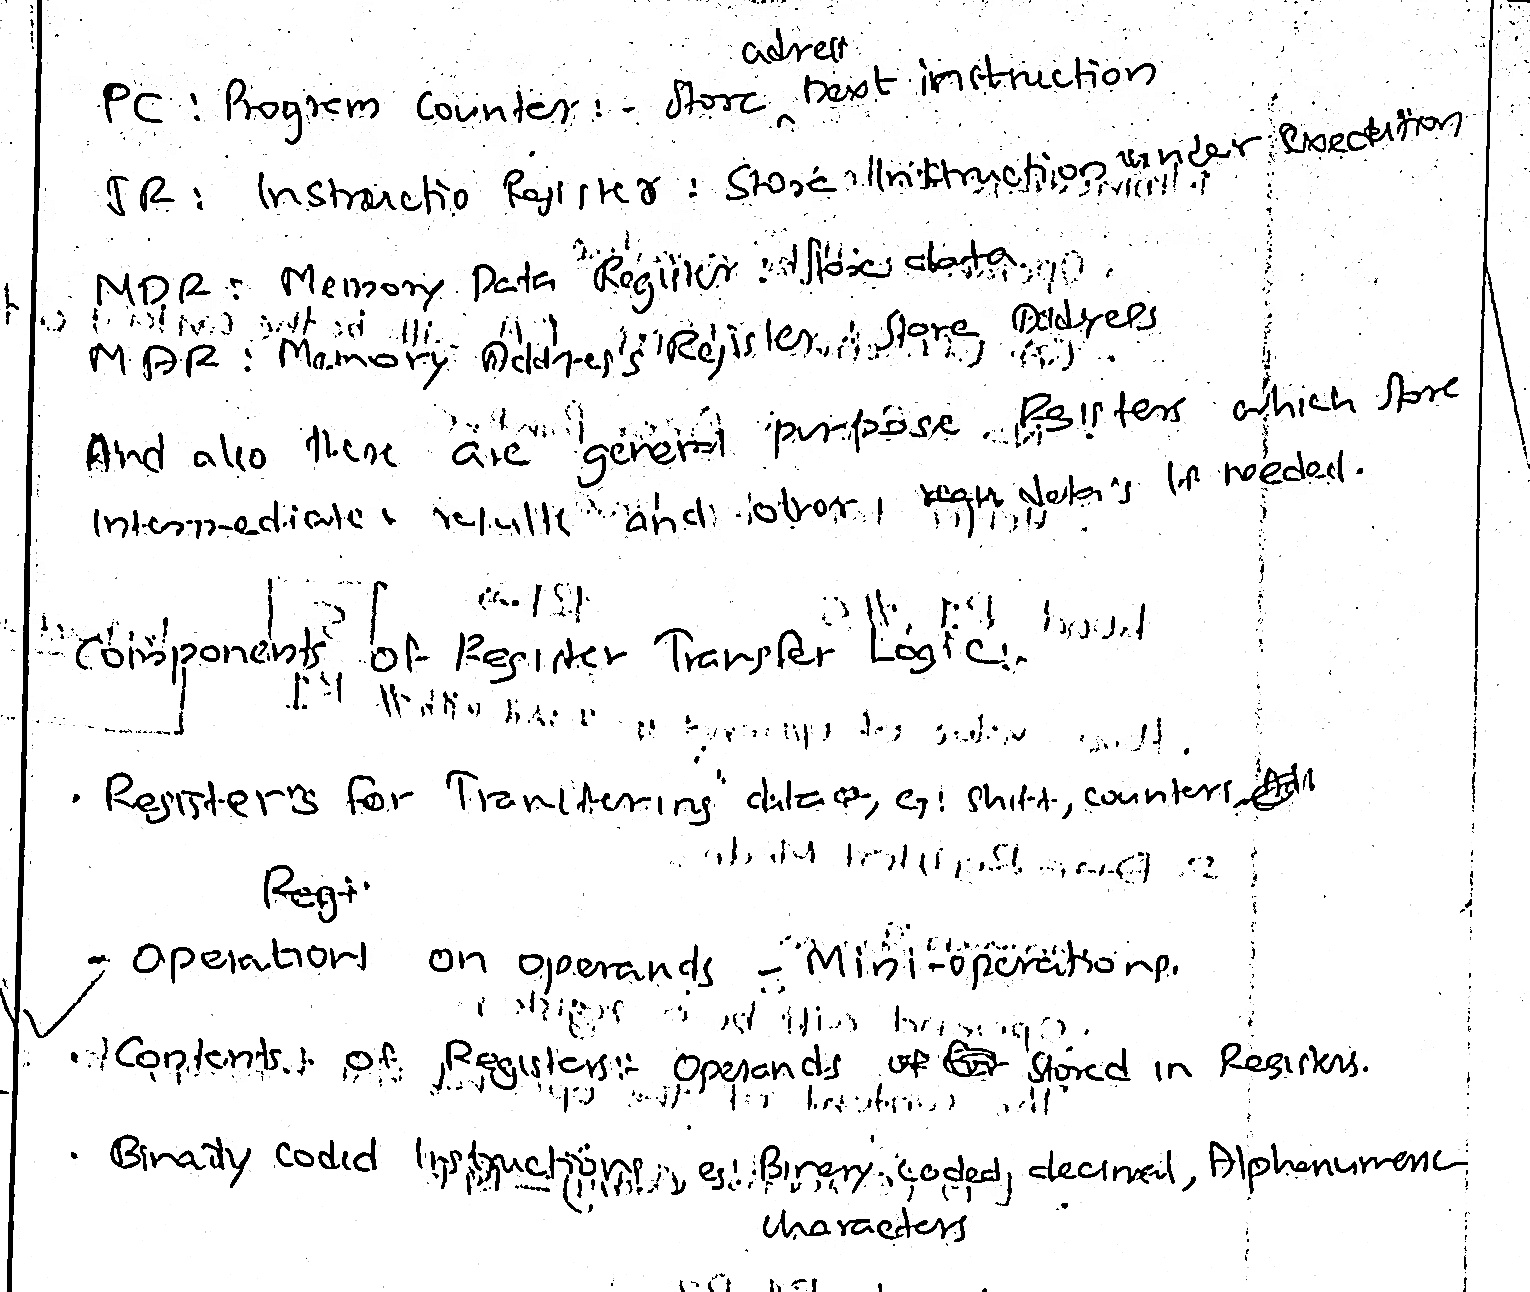 PC : Program Counter :- Store adress next instruction
IR : Instructio Register : Store Instruction under execution
MDR : Memory Data Register : Store data
MAR : Memory Address Register : Store Address
And also there are general purpose Registers which store
Intermediate results and other data's if needed.
Components of Register Transfer Logic :-
· Registers for Transfering data, eg: shift, counters
Regi
- Operations on operands - Mini-operations.
· Contents of Registers :- Operands stored in Registers.
· Binary coded Instructions, eg: Binary coded decimal, Alphanumeric
characters